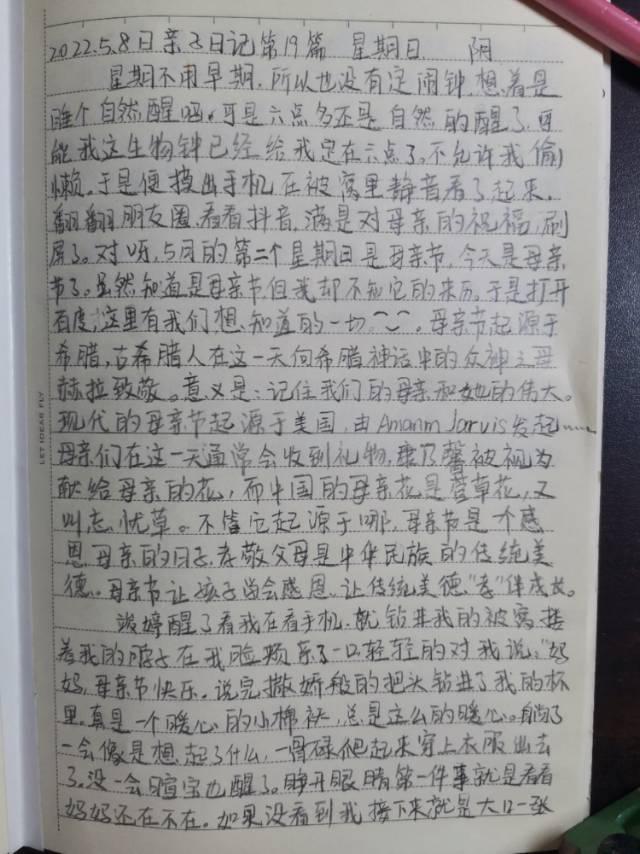 2022.5.8日亲子日记第19篇 星期日 阴
星期不用早期,所以也没有定闹钟,想着是
睡个自然醒吧。可是六点多还是自然的醒了,可
能我这生物钟已经给我定在六点了,不允许我偷
懒。于是便摸出手机在被窝里静音看了起来,
翻翻朋友圈,看看抖音,满是对母亲的祝福,刷
屏了。对呀,5月的第二个星期日是母亲节,今天是母亲
节了。虽然知道是母亲节但我却不知它的来历。于是打开
百度,这里有我们想知道的一切。母亲节起源于
希腊,古希腊人在这一天向希腊神话中的众神之母
赫拉致敬。意义是:记住我们的母亲和她的伟大。
现代的母亲节起源于美国,由Amanm Jarvis发起……
母亲们在这一天通常会收到礼物,康乃馨被视为
献给母亲的花,而中国的母亲花是萱草花,又
叫忘忧草。不管它起源于哪,母亲节是一个感
恩母亲的日子,孝敬父母是中华民族的传统美
德。母亲节让孩子学会感恩,让传统美德"孝"伴成长。
婷醒了看我在看手机,就钻进我的被窝搂
着我的脖子在我脸颊亲了一口轻轻的对我说:"妈
妈,母亲节快乐。说完撒娇般的把头钻进了我的怀
里。真是一个暖心的小棉袄,总是这么的暖心。躺了
一会像是想起了什么,一骨碌爬起来穿上衣服出去
了。没一会暄宝也醒了。睁开眼睛第一件事就是看看
妈妈还在不在。如果没看到我接下来就是大口一张
LET IDEAR FLY